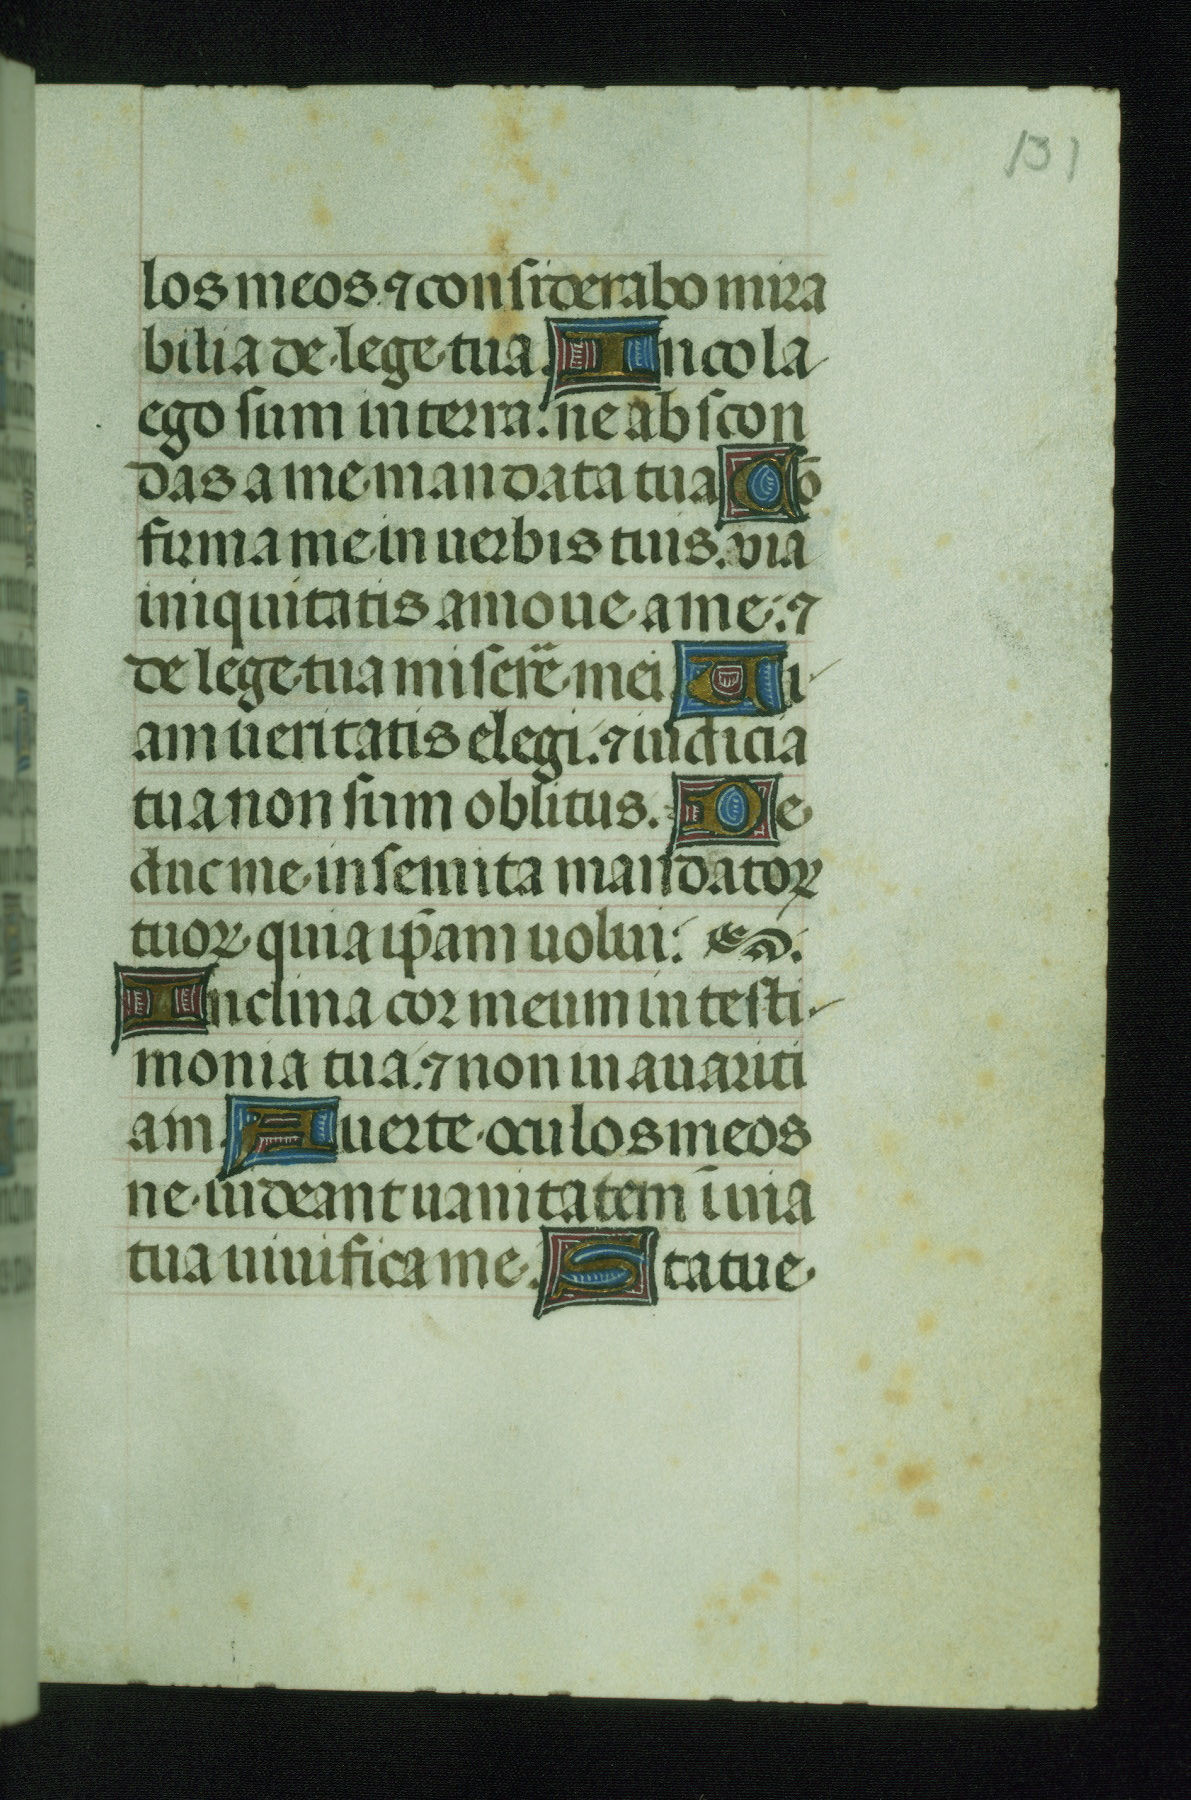 131
los meos. ⁊ considerabo mira
bilia de lege tua. Incola
ego sum in terra: ne abscon
das a me mandata tua Cō
firma me in uerbis tuis. via
iniquitatis amoue a me: ⁊
de lege tua misere᷑ mei Ui
am ueritatis elegi: ⁊ iudicia
tua non sum oblitus. De
duc me in semita mandatoꝝ
tuoꝝ quia ip̄am uolui:
Inclina cor meum in testi
monia tua: ⁊ non in auariti
am. Auerte oculos meos
ne uideant uanitatem ī uia
tua uiuifica me. Statue